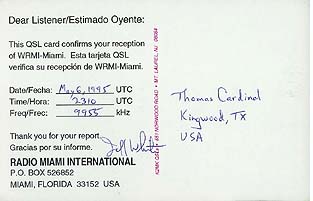 Dear Listener/Estimado Oyente:
This QSL card confirms your reception
of WRMI-Miami. Esta tarjeta QSL
verifica su recepción de WRMI-Miami.
Date/Fecha: May 6, 1995 UTC
Time/Hora: 2310 UTC
Freq/Frec: 9955 kHz
Thank you for your report.
Gracias por su informe.
Jeff White
RADIO MIAMI INTERNATIONAL
P.O. BOX 526852
MIAMI, FLORIDA 33152 USA
• 451 NORWOOD ROAD • MT. LAUREL, NJ 08054
Thomas Cardinal
Kingwood, TX
USA